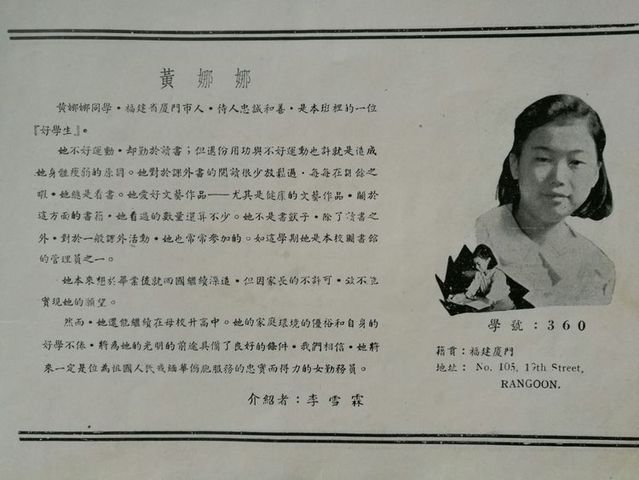 黃娜娜
黃娜娜同學，福建省廈門市人，待人忠誠和善，是本班裡的一位
『好學生』。
她不好運動，却勤於讀書；但過份用功與不好運動也許就是造成
她身體瘦弱的原因。她對於課外書的閱讀很少放鬆過，每每在課餘之
暇，她總是看書。她愛好文藝作品——尤其是健康的文藝作品，關於
這方面的書籍，她看過的數量還算不少。她不是書獃子，除了讀書之
外，對於一般課外活動，她也常常參加的。如這學期她是本校圖書館
的管理員之一。
她本來想於畢業後就回國繼續深造，但因家長的不許可，致不能
實現她的願望。
然而，她還能繼續在母校升高中。她的家庭環境的優裕和自身的
好學不倦，將為她的光明的前途具備了良好的條件，我們相信，她將
來一定是位為祖國人民或緬華僑胞服務的忠實而得力的女勤務員。
介紹者：李雪霖
學號：360
籍貫：福建廈門
地址： No. 105, 19th Street,
RANGOON.